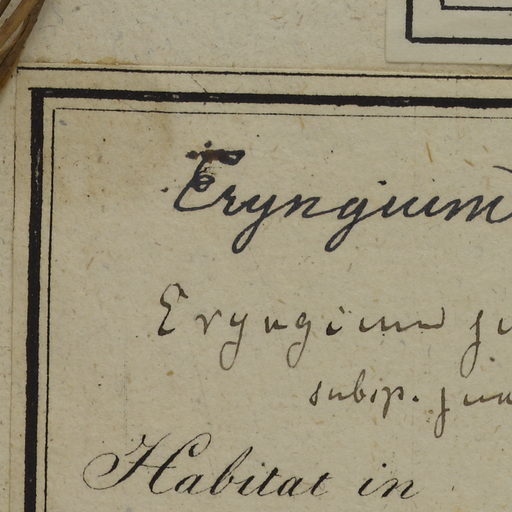 Eryngium
Eryngium
subsp.
Habitat in